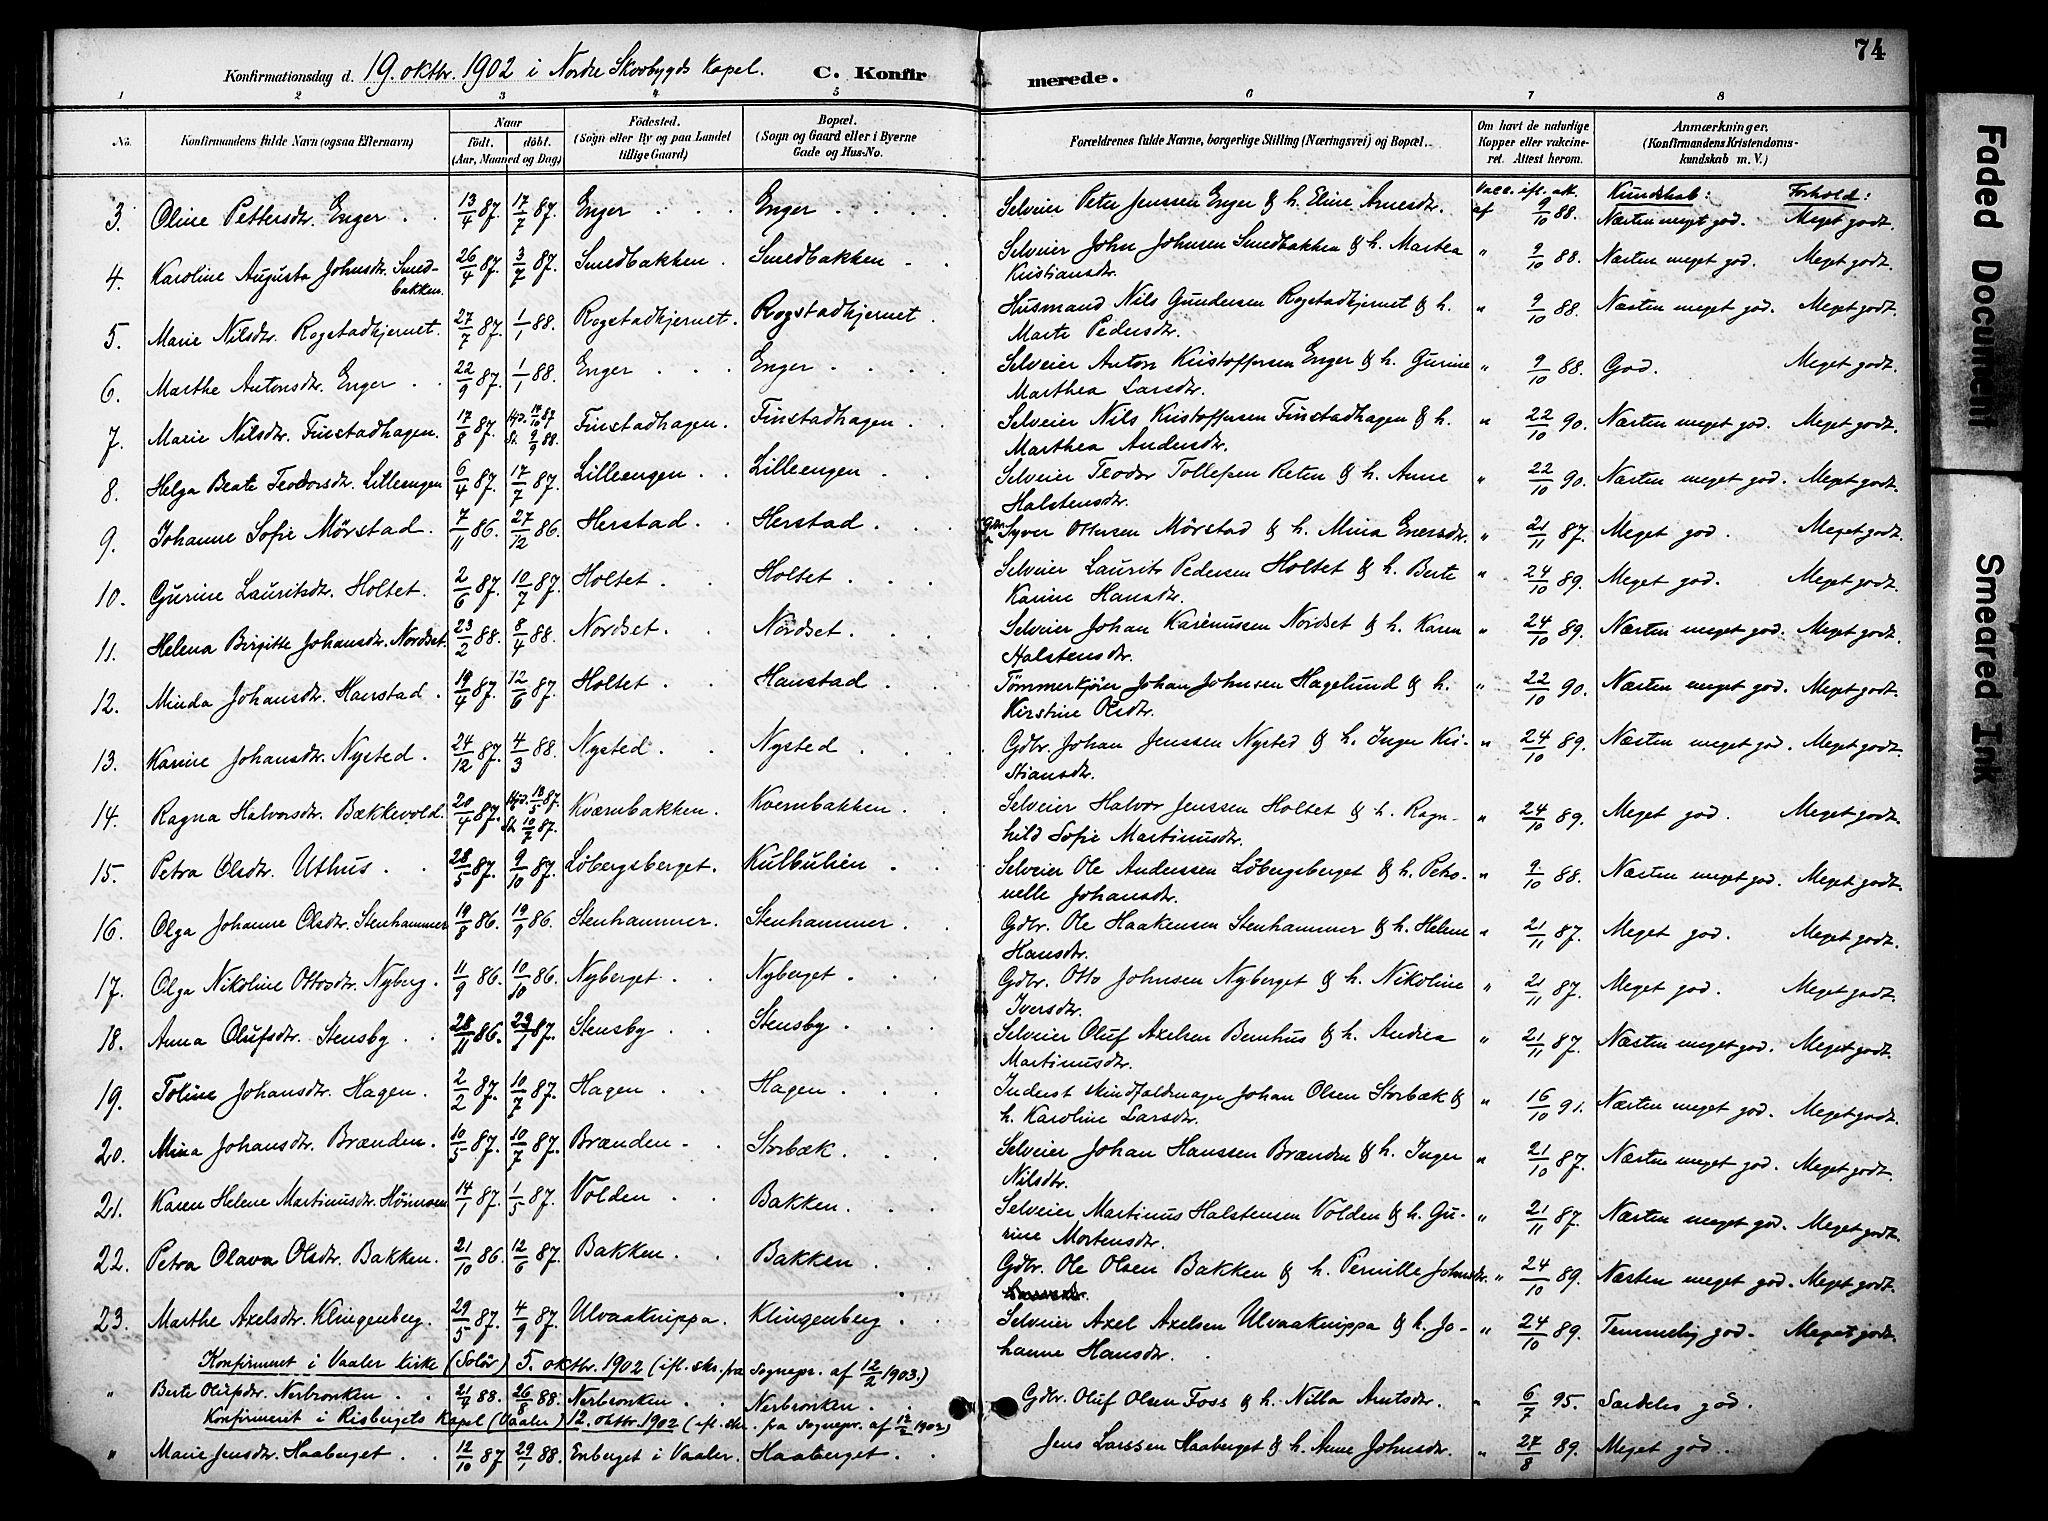 74
Konfirmationsdag d. 19. oktbr. 1902 i Nordre Skovbygds Kapel. C. Konfirmerede.
1 2 3 4 5 6 7 8
No. Konfirmandens fulde Navn (ogsaa Efternavn) Naar Født. døbt. (Aar, Maaned og Dag) Fødested. (Sogn eller By og paa Landet tillige Gaard) Bopæl. (Sogn og Gaard eller i Byerne Gade og Hus-No. Forældrenes fulde Navne, borgerlige Stilling (Næringsvei) og Bopæl. Om havt de naturlige Kopper eller vakcineret. Attest herom. Anmærkninger. (Konfirmandens Kristendomskundskab m. V.)
Vacc. ifl. att. Kundskab: Forhold:
3. Oline Pettersdtr. Enger . . 13/4 87. 17/7 87. Enger . . . Enger . . . . Selveier Peter Jenssen Enger & h. Eline Arnesdtr. af 9/10 88. Næsten meget god. Meget godt.
4. Karoline Augusta Johnsdtr. Smedbakken. 26/4 87. 3/7 87. Smedbakken . Smedbakken . . Selveier John Johnsen Smedbakken & h. Marthea Kristiansdtr. " 9/10 88. Næsten meget god. Meget godt.
5. Marie Nilsdtr. Rogstadkjernet. 27/7 87. 1/1 88. Rogstadkjernet. Rogstadkjernet. Husmand Nils Gundersen Rogstadkjernet & h. Marte Pedersdtr. " 9/10 88. Næsten meget god. Meget godt.
6. Marthe Antonsdtr. Enger . . 22/9 87. 1/1 88. Enger . . . Enger . . . . Selveier Anton Kristoffersen Enger & h. Gurine Marthea Larsdtr. " 9/10 88. God. Meget godt.
7. Marie Nilsdtr. Finstadhagen. 17/8 87. Hjd. 17/10 87 St. 9/9 88. Finstadhagen. Finstadhagen . . Selveier Nils Kristoffersen Finstadhagen & h. Marthea Andersdtr. " 22/10 90. Næsten meget god. Meget godt.
8. Helga Beate Teodorsdtr. Lilleengen 6/4 87. 17/7 87. Lilleengen . . Lilleengen . . . Selveier Teodor Tollefsen Reten & h. Anne Halstensdtr. " 22/10 90. Næsten meget god. Meget godt.
9. Johanne Sofie Mørstad . 7/11 86. 27/12 86. Herstad . . Herstad . . . Syver Ottersen Mørstad & h. Mina Enersdtr. " 21/11 87. Meget god. Meget godt.
10. Gurine Lauritsdtr. Holtet . 2/6 87. 10/7 87. Holtet . . Holtet . . . Selveier Laurits Pedersen Holtet & h. Berte Karine Hansdtr. " 24/10 89. Meget god. Meget godt.
11. Helena Birgitte Johansdtr. Nordset. 23/2 88. 8/4 88. Nordset . . Nordset . . . Selveier Johan Karenussen Nordset & h. Karen Halstensdtr. " 24/10 89. Næsten meget god. Meget godt.
12. Minda Johansdtr. Hanstad . 19/4 87. 12/6 87. Holtet . . Hanstad . . . Tømmerkjører Johan Johnsen Hagelund & h. Kirstine Olsdtr. " 22/10 90. Næsten meget god. Meget godt.
13. Karine Johansdtr. Nysted . 24/12 87. 4/3 88. Nysted . . Nysted . . . Gdbr. Johan Jenssen Nysted & h. Inger Kristiansdtr. " 24/10 89. Næsten meget god. Meget godt.
14. Ragna Halvorsdtr. Bækkevold. 20/4 87. Hjd. 18/5 87. St. 10/7 87. Kværnbakken. Kvernbakken . . Selveier Halvor Jenssen Holtet & h. Ragnhild Sofie Martinusdtr. " 24/10 89. Meget god. Meget godt.
15. Petra Olsdtr. Uthus . . 28/5 87. 9/10 87. Løbergsberget. Kulbulien . . Selveier Ole Andersen Løbergsberget & h. Petronelle Johansdtr. " 9/10 88. Næsten meget god. Meget godt.
16. Olga Johanne Olsdtr. Stenhammer 19/8 86. 19/9 86. Stenhammer. Stenhammer . . Gdbr. Ole Haakensen Stenhammer & h. Helene Hansdtr. " 21/11 87. Meget god. Meget godt.
17. Olga Nikoline Ottosdtr. Nyberg. 11/9 86. 10/10 86. Nyberget . . Nyberget . . . Gdbr. Otto Johnsen Nyberget & h. Nikoline Iversdtr. " 21/11 87. Meget god. Meget godt.
18. Anna Olufsdtr. Stensby . . 28/11 86. 23/1 87. Stensby . . Stensby . . . Selveier Oluf Axelsen Bernhus & h. Andrea Martinusdtr. " 21/11 87. Næsten meget god. Meget godt.
19. Toline Johansdtr. Hagen . 2/2 87. 10/7 87. Hagen . . Hagen . . . Inderst skindfeldmager Johan Olsen Storbæk & h. Karoline Larsdtr. " 16/10 91. Næsten meget god. Meget godt.
20. Mina Johansdtr. Brænden . 10/5 87. 10/7 87. Brænden . . Storbæk . . . Selveier Johan Hanssen Brænden & h. Inger Nilsdtr. " 21/10 87. Næsten meget god. Meget godt.
21. Karen Helene Martinusdtr. 14/1 87. 1/5 87. Volden . . Bakken . . . Selveier Martinus Halstensen Volden & h. Gurine Mortensdtr. " 21/11 87. Næsten meget god. Meget godt.
22. Petra Olava Olsdtr. Bakken. 21/10 86. 12/6 87. Bakken . . Bakken . . . Gdbr. Ole Olsen Bakken & h. Pernille Johnsdtr. " 24/10 89. Næsten meget god. Meget godt.
23. Marthe Axelsdtr. Klingenberg. 29/5 87. 4/9 87. Ulvaaknippa. Klingenberg . . Selveier Axel Axelsen Ulvaaknippa & h. Johanne Hansdtr. " 24/10 89. Temmelig god. Meget godt.
Konfirmeret i Vaaler kirke (Solør) 5. oktbr. 1902 (ifl. skr. fra Sognepr. af 12/2 1903.)
" Berte Olufsdtr. Nerbronken . . 21/4 88. 26/8 88. Nerbronken . Nerbronken . . Gdbr. Oluf Olsen Foss & h. Nilla Arntsdtr. " 6/7 95. Særdeles god.
Konfirmeret i Risbergets Kapel (Vaaler) 12. oktbr. 1902 (ifl. skr. fra Sognepr. af 12/2 1903)
" Marie Jensdtr. Haaberget . . 12/10 87 29/1 88. Enberget i Vaaler. Haaberget . . Jens Larssen Haaberget & h. Anne Johnsdtr. " 27/8 89. Meget god.
Faded Document
Smeared Ink